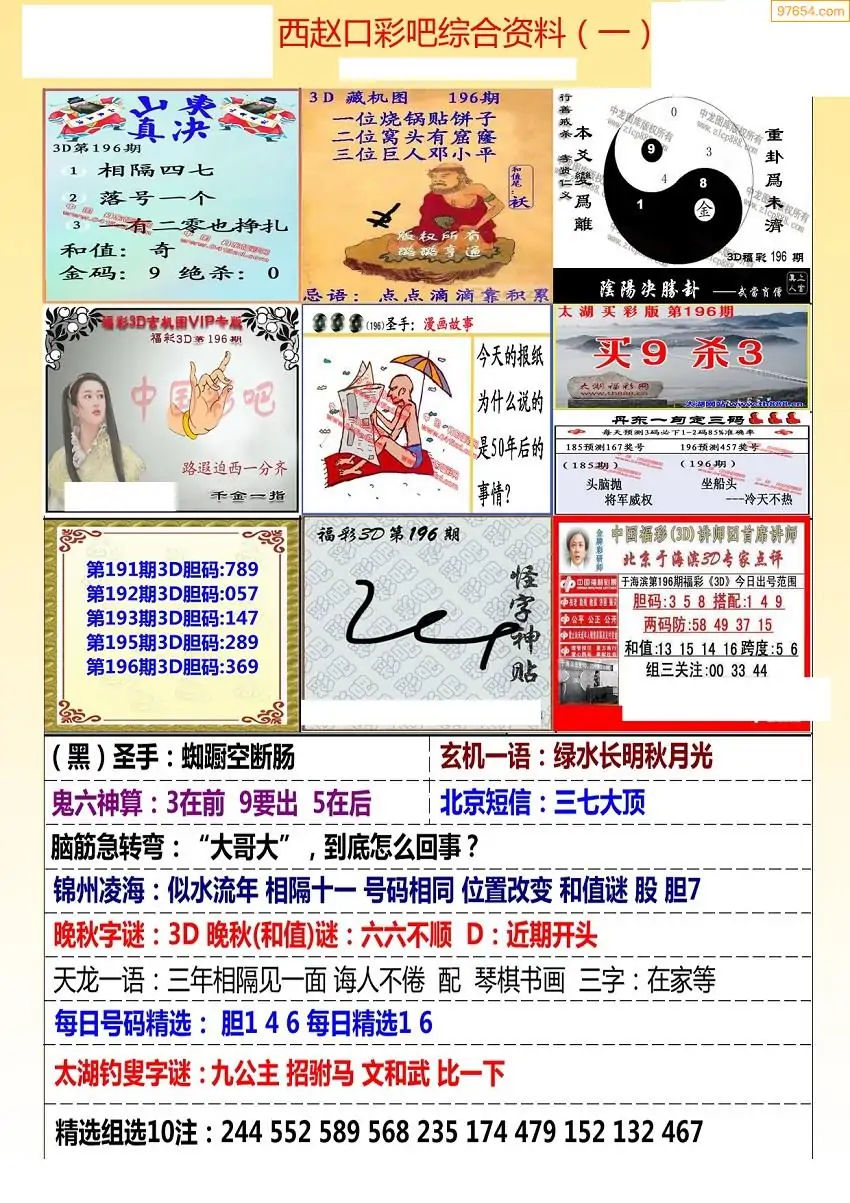 97654.com
西赵口彩吧综合资料（一）
山东
真决
3D第196期
1 相隔四七
2 落号一个
3 一有二零也挣扎
和值：奇
金码：9 绝杀：0
3D 藏机图 196期
一位烧锅贴饼子
二位窝头有窟窿
三位巨人邓小平
和值笔：
袄
版权所有
忌语：点点滴滴靠积累
行善戒杀
本爻變爲離
重卦爲未濟
中龙图库版权所有
www.zlcp888.com
0
9
3
4
8
1
金
3D福彩 196 期
陰陽决勝卦 ——武當育僧
福彩3D玄机图VIP专版
福彩3D第196期
中国彩吧
路遐迫西一分齐
千金一指
(196)圣手：漫画故事
今天的报纸
为什么说的
是50年后的
事情？
太湖买彩版 第196期
买9 杀3
太湖福彩网
www.th888.cn
太湖网站www.th888.cn
丹东一句定三码
每天预测3码必下1-2码85%准确率
185预测167奖号 196预测457奖号
（185期） （196期）
头脑抛 坐船头
将军威权 ---冷天不热
第191期3D胆码:789
第192期3D胆码:057
第193期3D胆码:147
第195期3D胆码:289
第196期3D胆码:369
福彩3D第196期
怪字神贴
金牌彩研师
中国福彩(3D)讲师团首席讲师
北京于海滨3D专家点评
中国福利彩票
公平 公正 公开
于海滨第196期福彩《3D》今日出号范围
胆码:3 5 8 搭配:1 4 9
两码防:58 49 37 15
和值:13 15 14 16 跨度:5 6
组三关注:00 33 44
（黑）圣手：蜘蹰空断肠
玄机一语：绿水长明秋月光
鬼六神算：3在前 9要出 5在后
北京短信：三七大顶
脑筋急转弯：“大哥大”，到底怎么回事？
锦州凌海：似水流年 相隔十一 号码相同 位置改变 和值谜 股 胆7
晚秋字谜：3D 晚秋(和值)谜：六六不顺 D：近期开头
天龙一语：三年相隔见一面 诲人不倦 配 琴棋书画 三字：在家等
每日号码精选： 胆1 4 6 每日精选1 6
太湖钓叟字谜：九公主 招驸马 文和武 比一下
精选组选10注：244 552 589 568 235 174 479 152 132 467